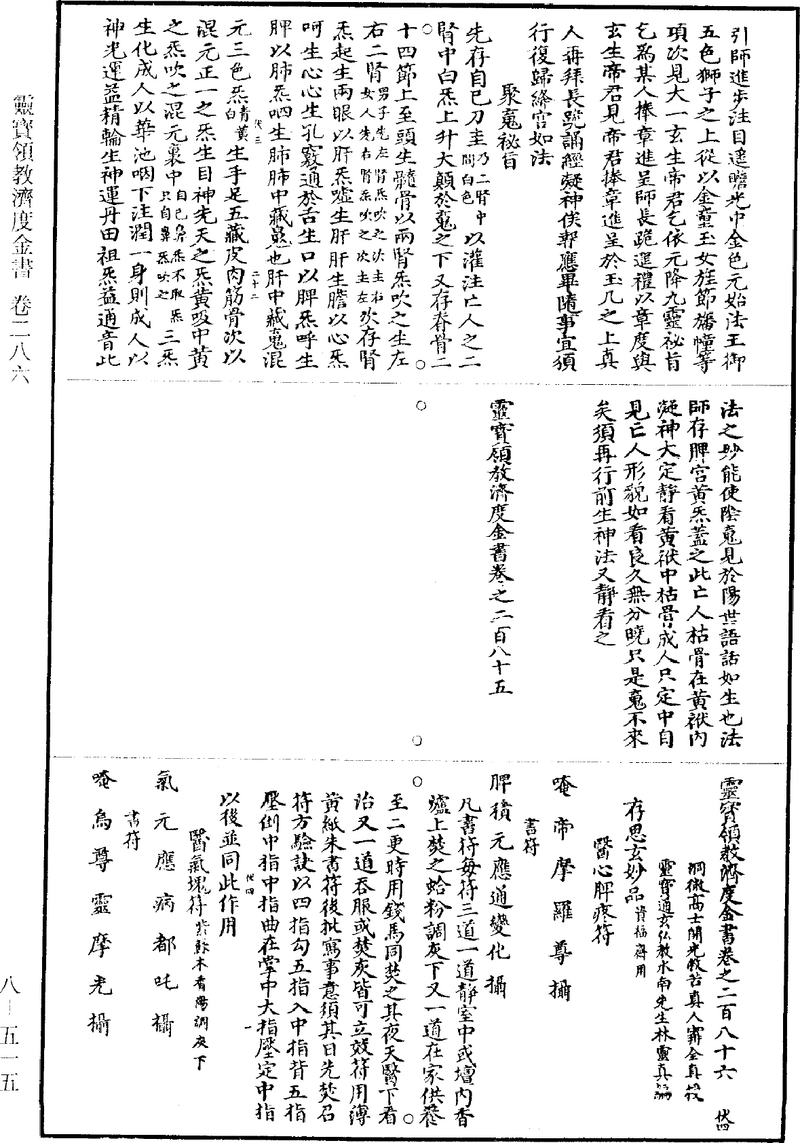 靈寶領教濟度金書 卷二八六
八—五一五
引師進步注目遙瞻光中金色元始法王御
五色獅子之上從以金童玉女旌節旛幢等
項次見大一玄生帝君乞依元降九靈祕旨
乞為某人捧章進呈師長跪進禮以章度與
玄生帝君見帝君捧章進呈於玉几之上真
人再拜長跪誦經凝神俟報應畢隨事宜須
行復歸絳宮如法
聚䰟祕旨
先存自己刀圭乃二腎中間白色以灌注亡人之二
腎中白炁上升大顛於䰟之下又存脊骨二
十四節上至頭生髓骨以兩腎炁吹之生左
右二腎男子先左腎炁吹之次主右女人先右腎炁吹之次主左次存腎
炁起生兩眼以肝炁噓生肝肝生膽以心炁
呵生心心生孔竅通於舌生口以脾炁呼生
脾以肺炁呬生肺肺中藏䰟也肝中藏䰟混
元三色炁白青黃生手足五藏皮肉筋骨次以
混元正一之炁生目神先天之炁黃吸中黃
之炁吹之混元裏中自己鼻炁不取炁只自鼻炁吹之三炁
生化成人以華池咽下注潤一身則成人以
神光運益精輪生神運丹田祖炁益通音此
法之妙能使陰䰟見於陽世語話如生也法
師存脾宮黃炁蓋之此亡人枯骨在黃袱內
凝神大定靜看黃袱中枯骨成人只定中自
見亡人形貌如看良久無分曉只是䰟不來
矣須再行前生神法又靜看之
靈寶領教濟度金書卷之二百八十五
靈寶領教濟度金書卷之二百八十六 伏四
洞微高士開光救苦真人甯全真授
靈寶通玄弘教水南先生林靈真編
存思玄妙品資福齋用
醫心脾疼符
唵帝摩羅尊攝
書符
脾積元應通變化攝
凡書符每符三道一道靜室中或壇內香
爐上焚之蛤粉調灰下又一道在家供養
至二更時用錢馬同焚之其夜天醫下看
治又一道吞服或焚灰皆可立效符用薄
黃紙朱書符後批寫事意須其日先焚召
符方驗訣以四指勾五指入中指背五指
壓倒中指中指曲在掌中大指壓定中指
以後並同此作用
醫氣塊符紫蘇木香湯調灰下
氣元應病都吒攝
書符
唵烏尊靈摩光攝